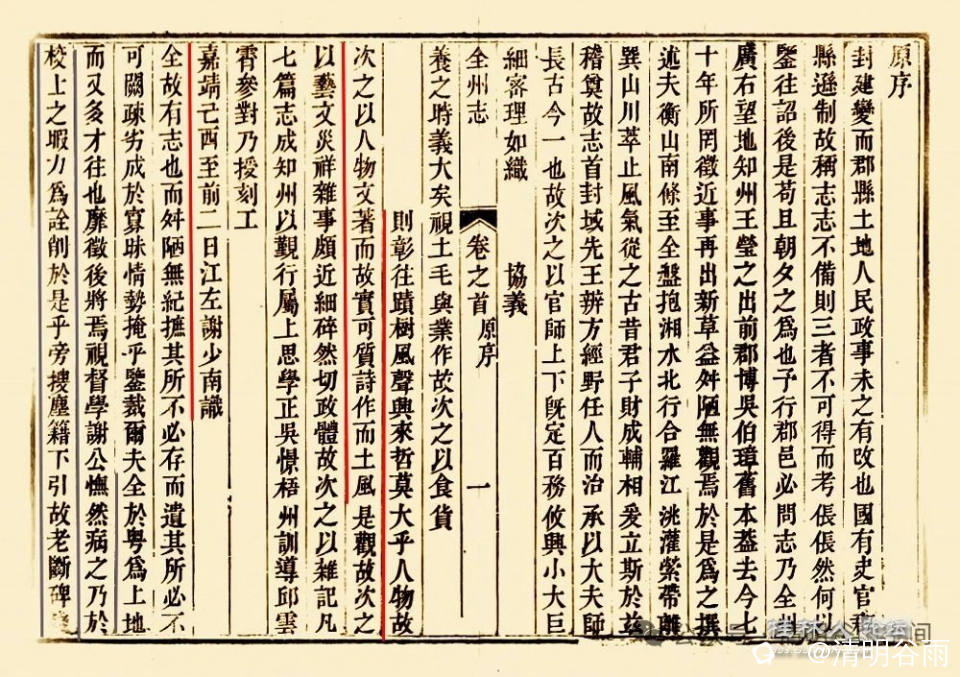 原序
封建變而郡縣土地人民政事未之有改也國有史官
縣遜制故稱志志不備則三者不可得而考倀倀然何以
鑒往詔後是苟且朝夕之爲也予行郡邑必問志乃全
廣右望地知州王瑩之出前郡博吳伯璋舊本葢去今七
十年所罔徵近事再出新草益舛陋無觀焉於是爲之撰
述夫衡山南條至全盤抱湘水北行合羅江洮灌縈帶離
巽山川萃止風氣從之古昔君子財成輔相爰立斯於玆
稽奠故志首封域先王辨方經野任人而治承以大夫師
長古今一也故次之以官師上下旣定百務攸興小大巨
細審理如織　協義
全州志　卷之首　原序　一
養之時義大矣視土毛與業作故次之以食貨
則彰往蹟樹風聲興來哲莫大乎人物故
次之以人物文著而故實可質詩作而土風是觀故次之
以藝文災祥雜事頗近細碎然切政體故次之以雜記凡
七篇志成知州以觀行屬上思學正吳憬梧州訓導邱雲
霄參對乃授刻工
嘉靖己酉至前二日江左謝少南識
全故有志也而舛陋無紀摭其所不必存而遺其所必不
可闕疎劣成於寡昧情勢掩乎鑒裁爾夫全於粵爲上地
而又多才往也靡徵後將焉視督學謝公憮然病之乃於
校士之暇力爲詮削於是乎旁搜塵籍下引故老斷碑
@清明谷雨